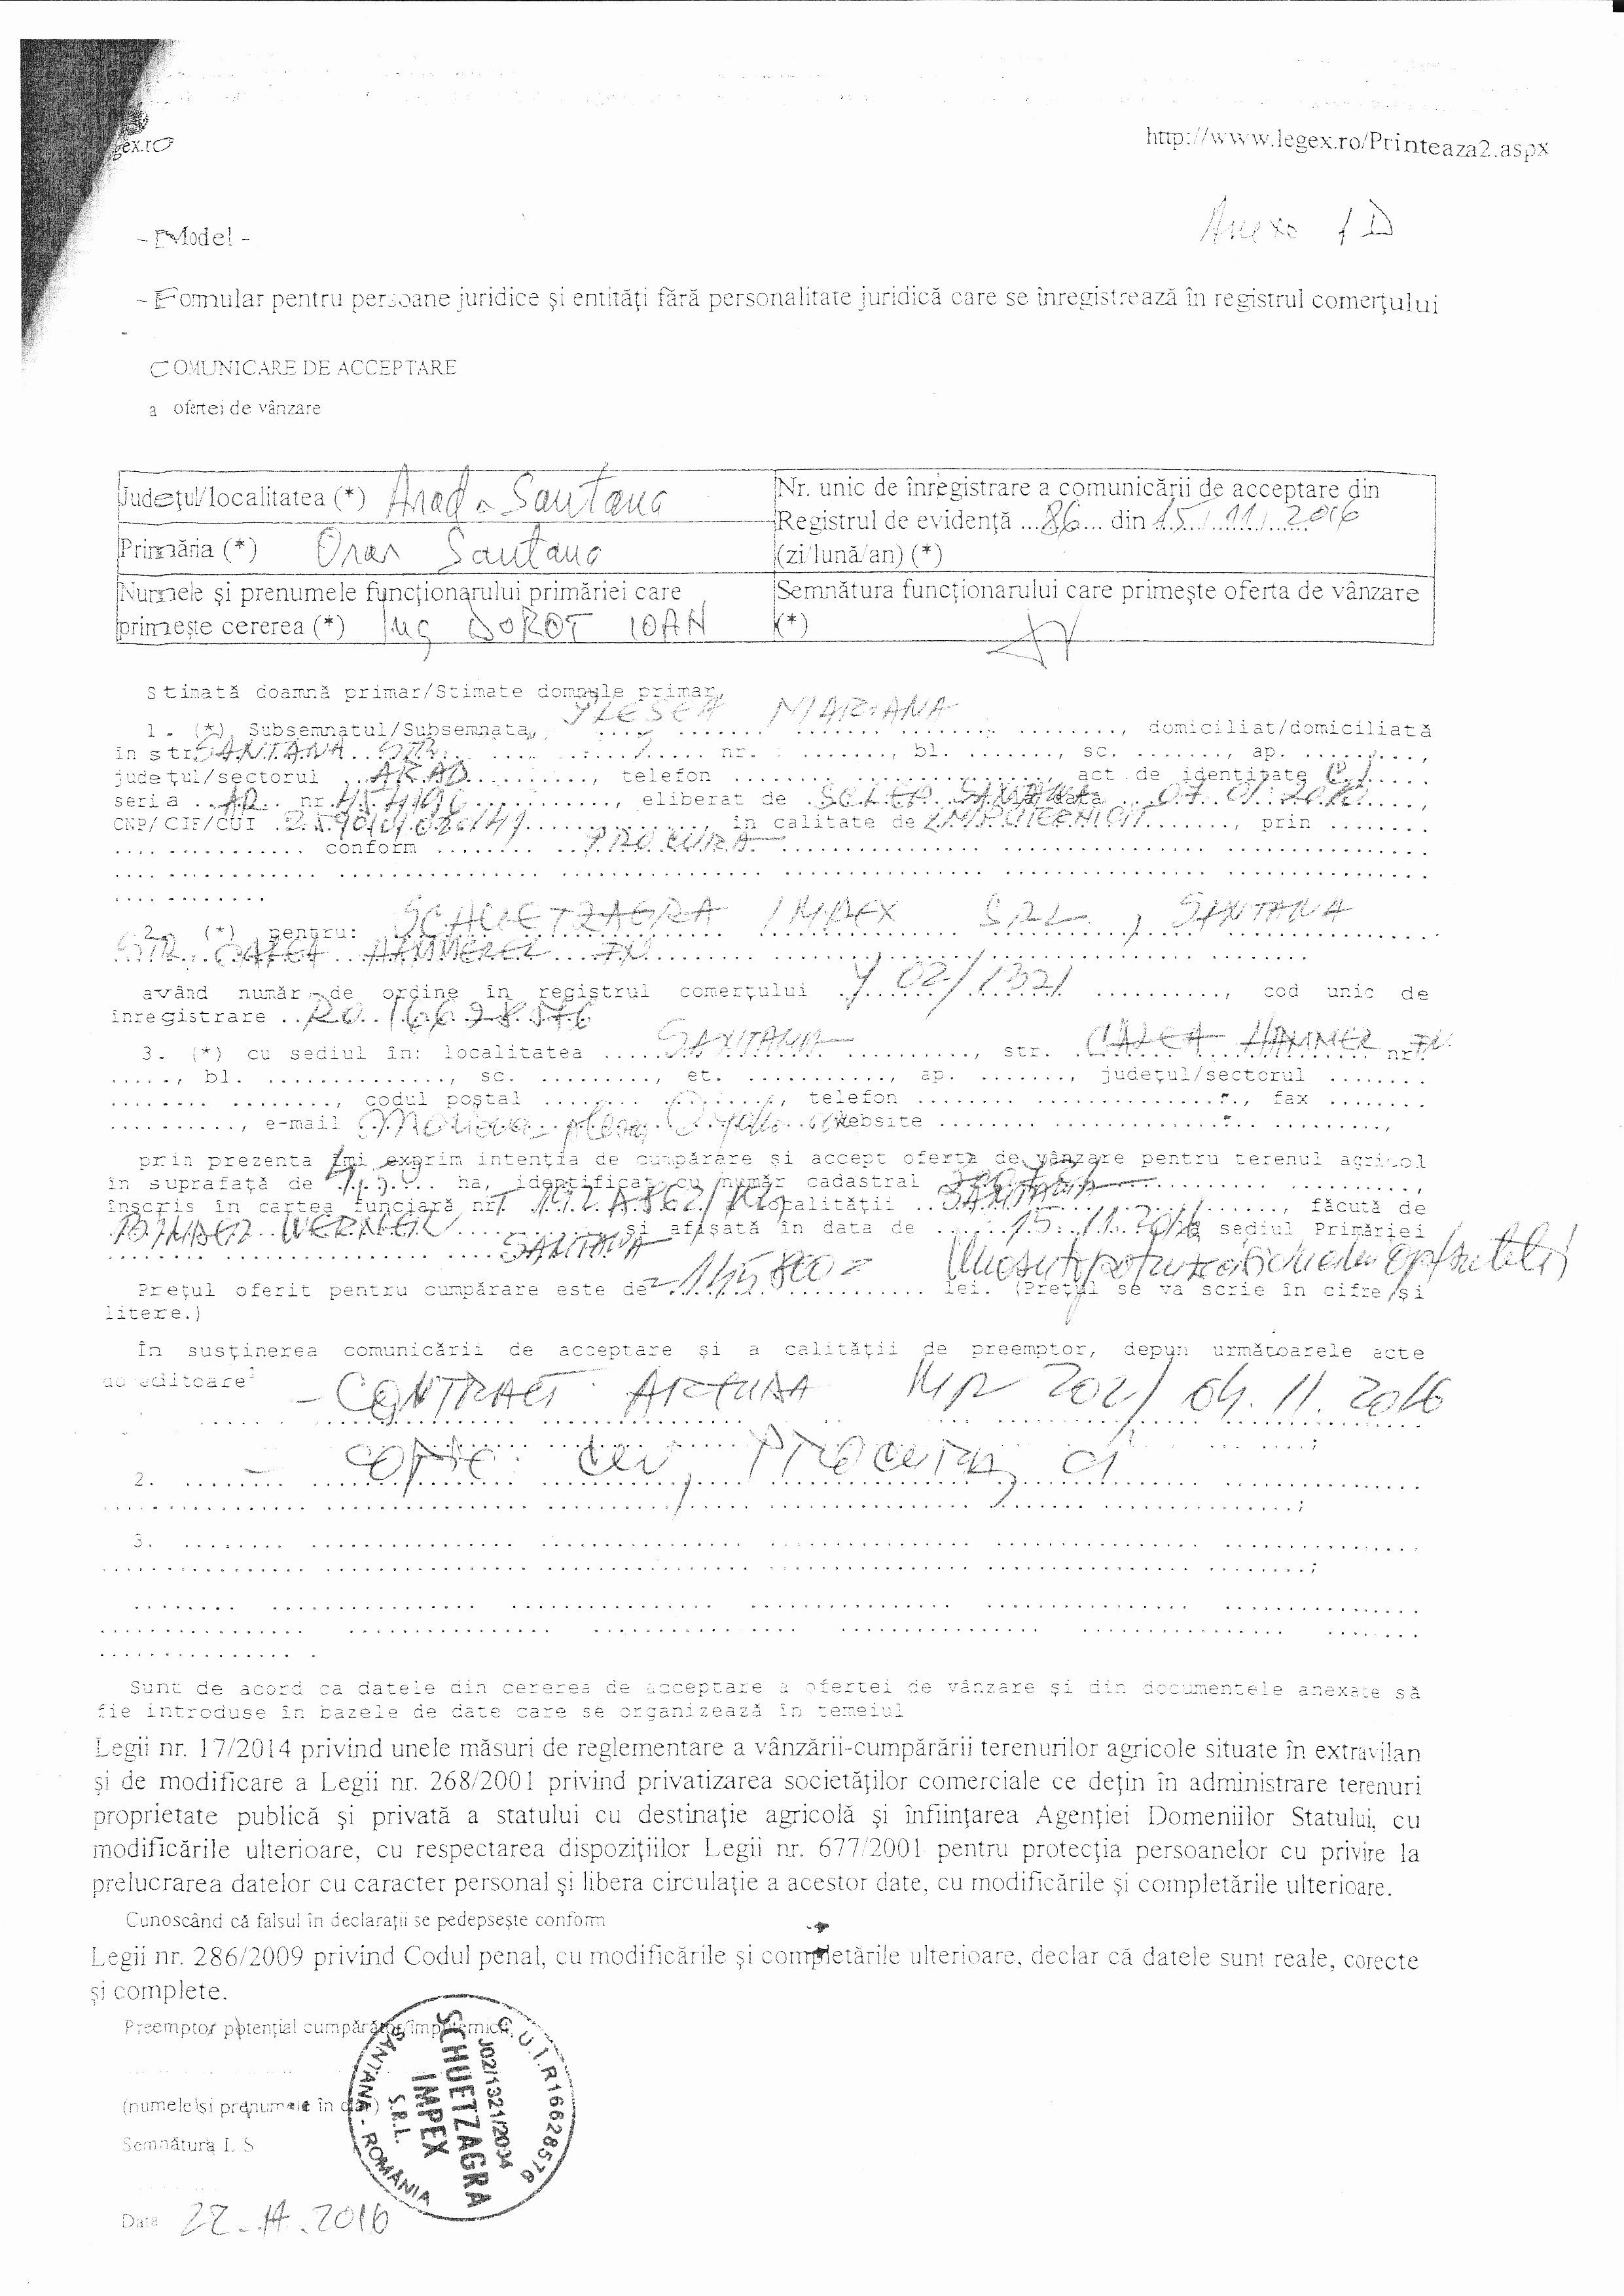 gex.ro
http://www.legex.ro/Printeaza2.aspx
Anexa 1D
- Model -
- Formular pentru persoane juridice şi entităţi fără personalitate juridică care se înregistrează în registrul comerţului
-
COMUNICARE DE ACCEPTARE
a ofertei de vânzare
Judeţul/localitatea (*) Arad - Santana
Nr. unic de înregistrare a comunicării de acceptare din
Registrul de evidenţă ...86... din 15/11/2016
(zi/lună/an) (*)
Primăria (*) Oras Santana
Numele şi prenumele funcţionarului primăriei care
primeşte cererea (*) Ing DOROT IOAN
Semnătura funcţionarului care primeşte oferta de vânzare
(*)
Stimată doamnă primar/Stimate domnule primar,
1. (*) Subsemnatul/Subsemnata, PLESEA MARIANA, domiciliat/domiciliată
în str. SANTANA STR. nr. ......, bl. ......, sc. ......, ap. ......,
judeţul/sectorul ARAD, telefon ......, act de identitate C.I.
seria AR nr. ......, eliberat de SCLEP SANTANA data 07.01.
CNP/CIF/CUI ......, în calitate de IMPUTERNICIT, prin ......
...... conform PROCURA
2. (*) pentru: SCHUETZAGRA IMPEX SRL, SANTANA
STR. CALEA HAMMERER FN
având număr de ordine în registrul comerţului J 02/1321, cod unic de
înregistrare RO 16628576
3. (*) cu sediul în: localitatea SANTANA, str. CALEA HAMMER nr. FN
....., bl. ......, sc. ......, et. ......, ap. ......, judeţul/sectorul ......
......, codul poştal ......, telefon ......, fax ......
......, e-mail ...... website ......,
prin prezenta îmi exprim intenţia de cumpărare şi accept oferta de vânzare pentru terenul agricol
în suprafaţă de ...... ha, identificat cu număr cadastral ......,
înscris în cartea funciară nr. ...... localităţii SANTANA, făcută de
BINDER WERNER şi afişată în data de 15.11.2016 sediul Primăriei
SANTANA
Preţul oferit pentru cumpărare este de =145 800= lei. (Preţul se va scrie în cifre şi
litere.)
În susţinerea comunicării de acceptare şi a calităţii de preemptor, depun următoarele acte
doveditoare
- CONTRACT ARENDA NR 202/ 04.11.2016
2. - COPIE CUI, PROCURA, CI
3. ......
Sunt de acord ca datele din cererea de acceptare a ofertei de vânzare şi din documentele anexate să
fie introduse în bazele de date care se organizează în temeiul
Legii nr. 17/2014 privind unele măsuri de reglementare a vânzării-cumpărării terenurilor agricole situate în extravilan
şi de modificare a Legii nr. 268/2001 privind privatizarea societăţilor comerciale ce deţin în administrare terenuri
proprietate publică şi privată a statului cu destinaţie agricolă şi înfiinţarea Agenţiei Domeniilor Statului, cu
modificările ulterioare, cu respectarea dispoziţiilor Legii nr. 677/2001 pentru protecţia persoanelor cu privire la
prelucrarea datelor cu caracter personal şi libera circulaţie a acestor date, cu modificările şi completările ulterioare.
Cunoscând că falsul în declaraţii se pedepseşte conform
Legii nr. 286/2009 privind Codul penal, cu modificările şi completările ulterioare, declar că datele sunt reale, corecte
şi complete.
Preemptor potenţial cumpărător/împuternicit,
(numele şi prenumele în clar)
Semnătura L S
C.U.I. R16628576
J02/1321/2004
SCHUETZAGRA
IMPEX
S.R.L.
SÂNTANA - ROMÂNIA
Data 22.11.2016